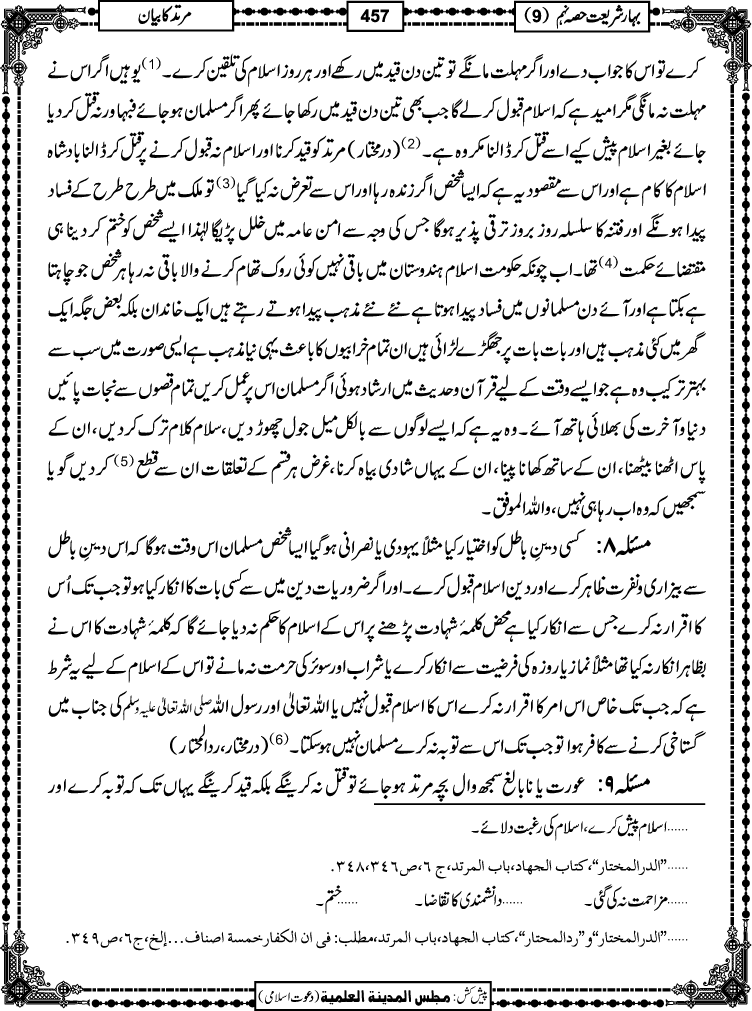 بہارِ شریعت حصہ نہم (9) 457 مرتد کا بیان
کرے تو اس کا جواب دے اور اگر مہلت مانگے تو تین دن قید میں رکھے اور ہر روز اسلام کی تلقین کرے۔(1) یوہیں اگر اس نے
مہلت نہ مانگی مگر امید ہے کہ اسلام قبول کرلے گا جب بھی تین دن قید میں رکھا جائے پھر اگر مسلمان ہوجائے فبہا ورنہ قتل کر دیا
جائے بغیر اسلام پیش کیے اسے قتل کر ڈالنا مکروہ ہے۔(2) (درمختار) مرتد کو قید کرنا اور اسلام نہ قبول کرنے پر قتل کر ڈالنا بادشاہ
اسلام کا کام ہے اور اس سے مقصود یہ ہے کہ ایسا شخص اگر زندہ رہا اور اس سے تعرض نہ کیا گیا(3) تو ملک میں طرح طرح کے فساد
پیدا ہونگے اور فتنہ کا سلسلہ روز بروز ترقی پذیر ہوگا جس کی وجہ سے امن عامہ میں خلل پڑیگا لہٰذا ایسے شخص کو ختم کر دینا ہی
مقتضائے حکمت(4) تھا۔ اب چونکہ حکومت اسلام ہندوستان میں باقی نہیں کوئی روک تھام کرنے والا باقی نہ رہا ہر شخص جو چاہتا
ہے بکتا ہے اور آئے دن مسلمانوں میں فساد پیدا ہوتا ہے نئے نئے مذہب پیدا ہوتے رہتے ہیں ایک خاندان بلکہ بعض جگہ ایک
گھر میں کئی مذہب ہیں اور بات بات پر جھگڑے لڑائی ہیں ان تمام خرابیوں کا باعث یہی نیا مذہب ہے ایسی صورت میں سب سے
بہتر ترکیب وہ ہے جو ایسے وقت کے لیے قرآن وحدیث میں ارشاد ہوئی اگر مسلمان اس پر عمل کریں تمام قصوں سے نجات پائیں
دنیا وآخرت کی بھلائی ہاتھ آئے۔ وہ یہ ہے کہ ایسے لوگوں سے بالکل میل جول چھوڑ دیں، سلام کلام ترک کر دیں، ان کے
پاس اٹھنا بیٹھنا، ان کے ساتھ کھانا پینا، ان کے یہاں شادی بیاہ کرنا، غرض ہر قسم کے تعلقات ان سے قطع(5) کر دیں گویا
سمجھیں کہ وہ اب رہا ہی نہیں، واللہ الموفق۔
مسئلہ ۸: کسی دین باطل کو اختیار کیا مثلاً یہودی یا نصرانی ہو گیا ایسا شخص مسلمان اس وقت ہوگا کہ اس دین باطل
سے بیزاری ونفرت ظاہر کرے اور دین اسلام قبول کرے۔ اور اگر ضروریات دین میں سے کسی بات کا انکار کیا ہو تو جب تک اُس
کا اقرار نہ کرے جس سے انکار کیا ہے محض کلمۂ شہادت پڑھنے پر اس کے اسلام کا حکم نہ دیا جائے گا کہ کلمۂ شہادت کا اس نے
بظاہر انکار نہ کیا تھا مثلاً نماز یا روزہ کی فرضیت سے انکار کرے یا شراب اور سوئر کی حرمت نہ مانے تو اس کے اسلام کے لیے یہ شرط
ہے کہ جب تک خاص اس امر کا اقرار نہ کرے اس کا اسلام قبول نہیں یا اللہ تعالیٰ اور رسول اللہ صلی اللہ تعالیٰ علیہ وسلم کی جناب میں
گستاخی کرنے سے کافر ہوا تو جب تک اس سے توبہ نہ کرے مسلمان نہیں ہو سکتا۔(6) (درمختار، ردالمحتار)
مسئلہ ۹: عورت یا نابالغ سمجھ وال بچہ مرتد ہو جائے تو قتل نہ کرینگے بلکہ قید کرینگے یہاں تک کہ توبہ کرے اور
......اسلام پیش کرے، اسلام کی رغبت دلائے۔
......"الدرالمختار"، کتاب الجہاد، باب المرتد، ج ٦، ص٣٤٦،٣٤٨.
......مزاحمت نہ کی گئی۔ ......دانشمندی کا تقاضا۔ ......ختم۔
......"الدرالمختار" و "ردالمحتار"، کتاب الجہاد، باب المرتد، مطلب: فی ان الکفار خمسة اصناف...إلخ، ج٦، ص٣٤٩.
پیش کش: مجلس المدینة العلمیة (دعوت اسلامی)